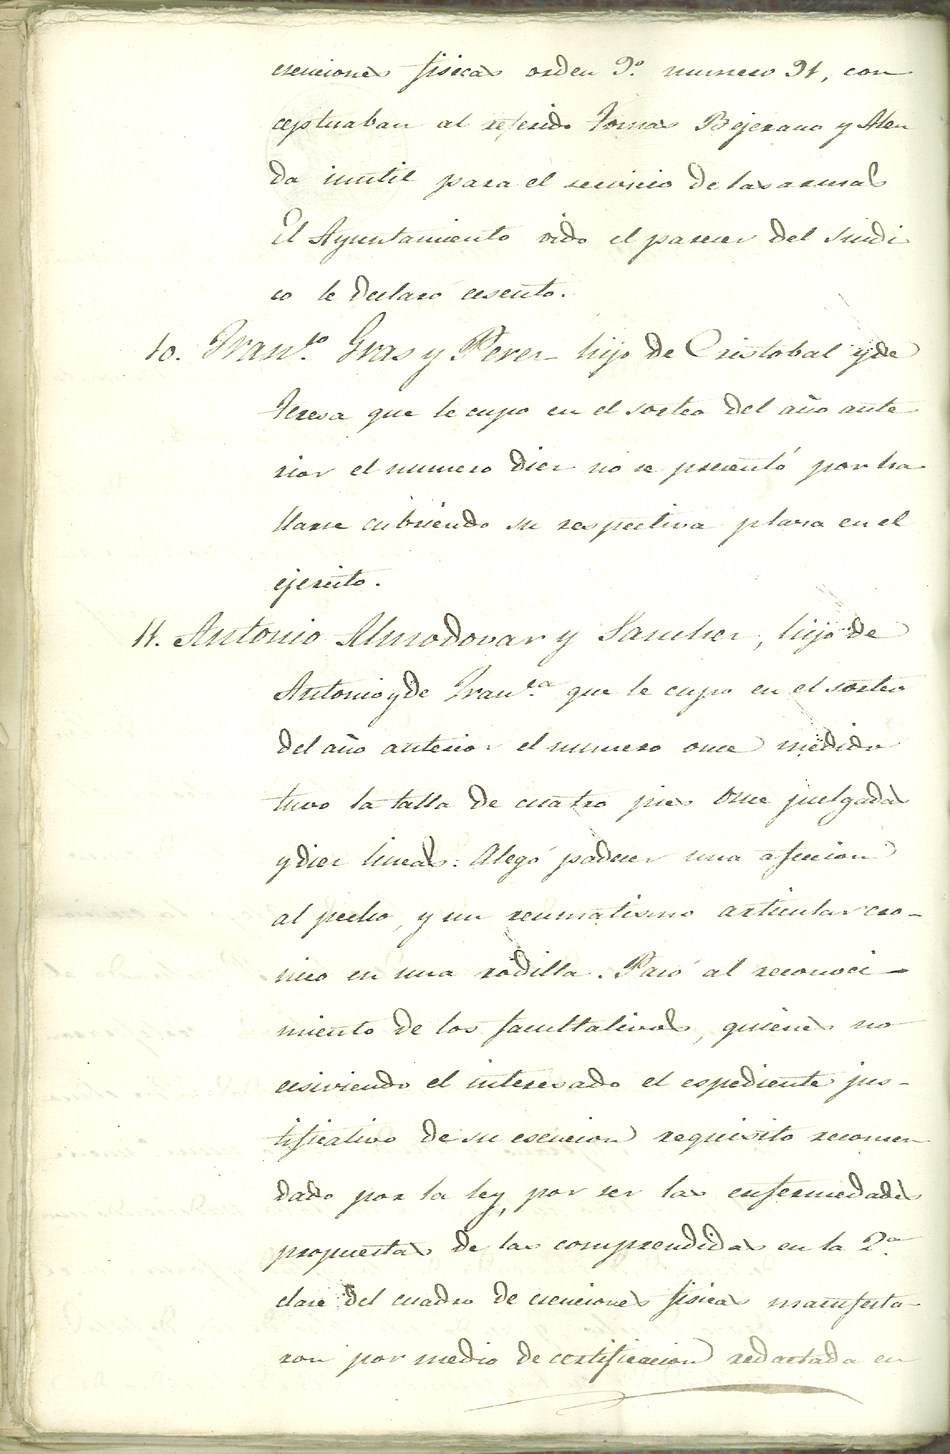 esenciones fisicas orden 9º. numero 91, con
ceptuaban al referido Tomas Bejerano y Alen
da inutil para el servicio de las armas
El Ayuntamiento oido el parecer del Sindi
co le declaró esento.
10. Fran.co Gras y Perez hijo de Cristobal y de
Teresa que le cupo en el sorteo del año ante
rior el numero diez no se presentó por ha
llarse cubriendo su respectiva plaza en el
ejercito.
11. Antonio Almodovar y Sanchez, hijo de
Antonio y de Fran.ca que le cupo en el sorteo
del año anterior el numero once medido
tuvo la talla de cuatro pies once pulgadas
y diez lineas: Alegó padecer una afeccion
al pecho, y un reumatismo articular cro-
nico en una rodilla. Pasó al reconoci-
miento de los facultativos, quienes no
exiviendo el interesado el espediente jus-
tificativo de su esencion requisito recomen
dado por la ley, por ser las enfermedades
propuestas de las comprendidas en la 2.a
clase del cuadro de esenciones fisicas manifesta
ron por medio de certificacion redactada en